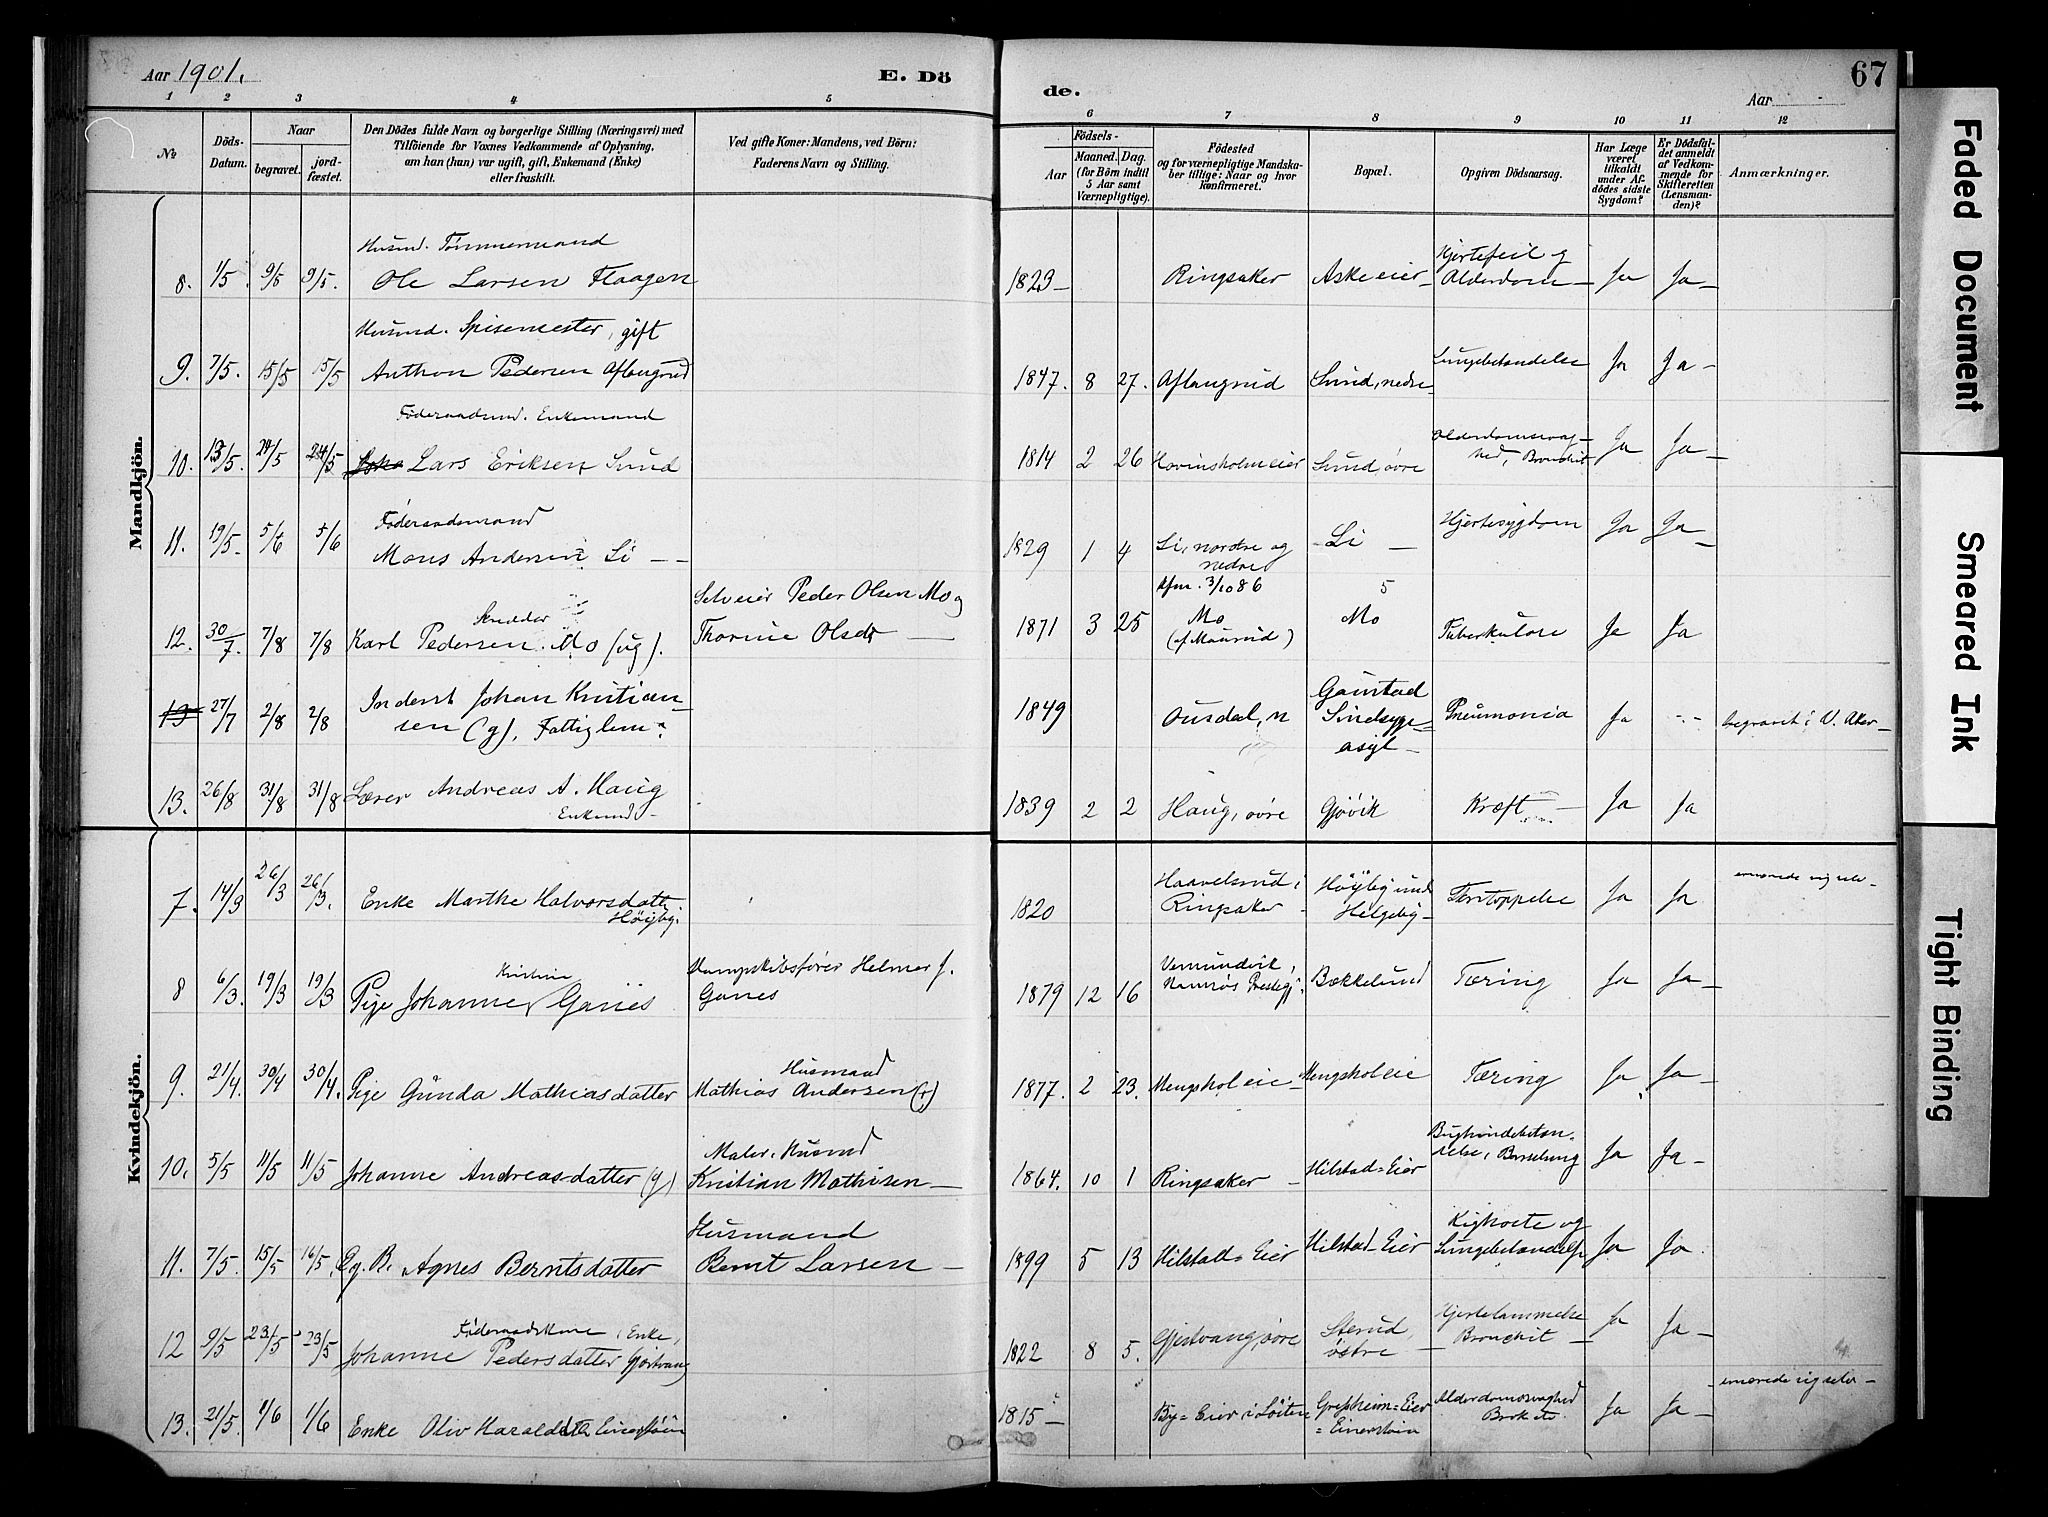 Aar 1901.
E. Dö
de.
Aar
67
1 2 3 4 5 6 7 8 9 10 11 12
No
Döds-Datum.
Naar
begravet.
jord-fæstet.
Den Dödes fulde Navn og borgerlige Stilling (Næringsvei) med
Tilföiende for Voxnes Vedkommende af Oplysning,
om han (hun) var ugift, gift, Enkemand (Enke)
eller fraskilt.
Ved gifte Koner: Mandens, ved Börn:
Faderens Navn og Stilling.
Födsels-
Aar
Maaned. Dag.
(for Börn indtil
5 Aar samt
Værnepligtige).
Födested
og for værnepligtige Mandska-
ber tillige: Naar og hvor
konfirmeret.
Bopæl.
Opgiven Dödsaarsag.
Har Læge
været
tilkaldt
under Af-
dödes sidste
Sygdom?
Er Dödsfal-
det anmeldt
af Vedkom-
mende for
Skifteretten
(Lensman-
den)?
Anmærkninger.
Mandkjön.
8. 1/5 9/5 9/5. Husmd. Tömmermand
Ole Larsen Flaagen
1823 Ringsaker Aske eier Hjertefeil og
Alderdom Ja Ja
9. 7/5. 15/5 15/5 Husmd. Spisemester, gift
Anthon Pedersen Aflangrud
1847. 8 27. Aflangrud Sund, nedre Lungebetændelse Ja Ja
10. 13/5. 24/5 24/5 Föderaadsmd. Enkemand
Lars Eriksen Sund
1814 2 26 Hovinsholm eier Sund, övre Alderdomssvag-
hed, Bronchit Ja Ja
11. 19/5. 5/6 5/6 Föderaadsmand
Mons Andersen Li
1829 1 4 Li, nordre og
nedre Li Hjertesygdom Ja Ja
12. 30/7. 7/8 7/8 Skrædder
Karl Pedersen Mo (ug).
Selveier Peder Olsen Mo og
Thorine Olsdr
1871 3 25 Kfm. 3/10 86
Mo
5
Mo Tuberkulose Ja Ja
13 27/7 2/8 2/8 Inderst Johan Kristian-
sen (g), Fattiglem
1849 Ousdal, n Gaustad
Sindsyge-
asyl Pneumonia Ja begravet i V. Aker
13. 26/8 31/8 31/8 Lærer Andreas A. Haug
Enkemd
1839 2 2 Haug, övre Gjövik Kræft Ja Ja
Kvindekjön.
7. 14/3 26/3 26/3. Enke Marthe Halvorsdatter
Höybg.
1820 Haavelsrud i
Ringsaker Höybg und
Helgeby Ja Ja ernærede sig selv
8 6/3. 19/3 19/3 Pige Johanne Kristine Ganes
Dampskibsförer Helmer J.
Ganes
1879 12 16 Vemundvik,
Namsos Prestegj. Bækkelund Tæring Ja Ja
9. 21/4. 30/4 30/4. Pige Gunda Mathiasdatter
Husmand
Mathias Andersen
1877. 2 23. Mengshol eie Mengshol eie Tæring Ja Ja
10. 5/5 11/5 11/5 Johanne Andreasdatter (g)
Maler, Husmd
Kristian Mathisen
1864. 10 1 Ringsaker Hilstad-Eier Bughindebetæn-
delse, Barselseng Ja Ja
11. 7/5. 15/5 16/5 Eg. B. Agnes Berntsdatter
Husmand
Bernt Larsen
1899 5 13 Hilstad-Eier Hilstad-Eier Kighoste og
Lungebetændelse Ja Ja
12 9/5 23/5 23/5 Föderaadskone, Enke,
Johanne Pedersdatter Gjestvang
1822 8 5. Gjestvang, övre Sterud,
östre Hjertelammelse
Bronchit Ja Ja
13. 21/5. 1/6 1/6 Enke Oliv Haraldsdtr Einerstöin
1815 By-Eier i Löiten Grefsheim-Eier
= Einerstöin Alderdomssvaghed Ja Ja ernærede sig selv
Faded Document
Smeared Ink
Tight Binding